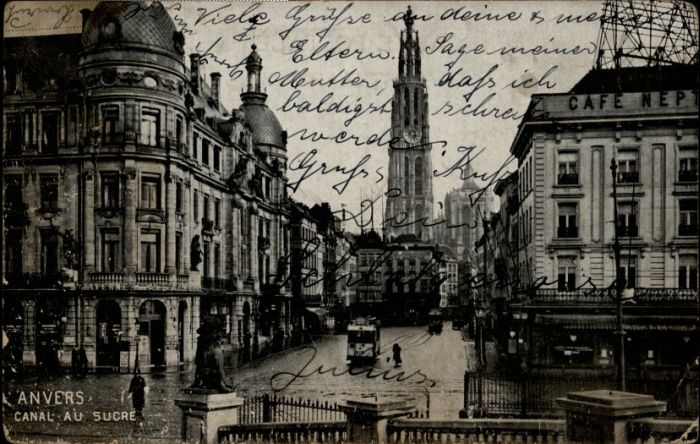 Viele Grüße an deine & meine
Eltern. Sage meiner
Mutter, daß ich
baldigst schreiben
werde.
Gruss Kuss
Dein
Julius
CAFE NEP
ANVERS
CANAL AU SUCRE